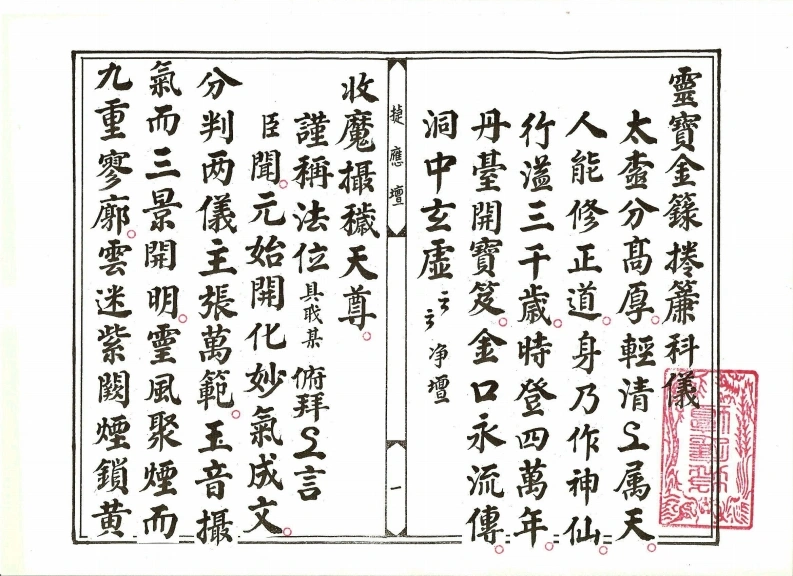 靈寶金籙捲簾科儀
太虛分髙厚。輕清上属天。
人能修正道。身乃作神仙。
行溢三千歲。時登四萬年。
丹臺開寶笈。金口永流傳。
洞中玄虛云云净壇
捷應壇
一
收魔攝穢天尊。
謹稱法位具戢某俯拜上言
臣聞。元始開化妙氣成文。
分判两儀主張萬範。玉音攝
氣而三景開明。靈風聚煙而
九重寥廓。雲迷紫闕煙鎖黄